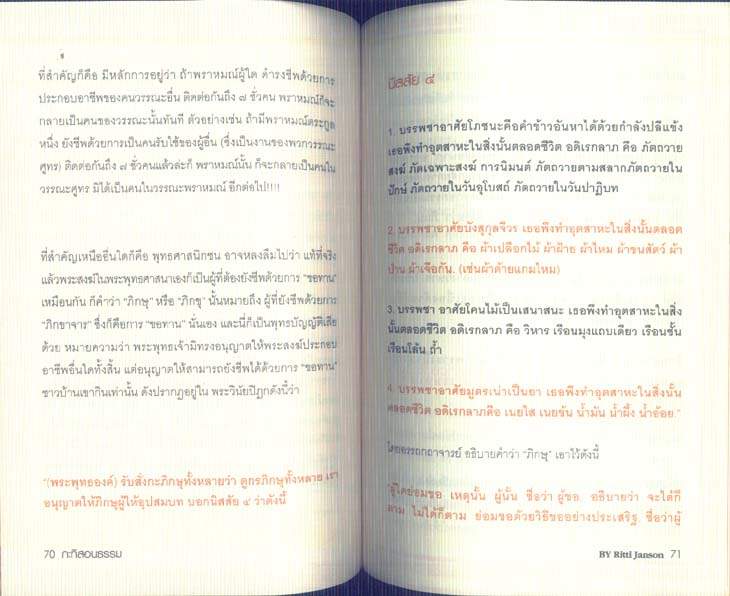 ที่สำคัญก็คือ มีหลักการอยู่ว่า ถ้าพราหมณ์ผู้ใด ดำรงชีพด้วยการ
ประกอบอาชีพของคนวรรณะอื่น ติดต่อกันถึง ๗ ชั่วคน พราหมณ์ก็จะ
กลายเป็นคนของวรรณะนั้นทันที ตัวอย่างเช่น ถ้ามีพราหมณ์ตระกูล
หนึ่ง ยังชีพด้วยการเป็นคนรับใช้ของผู้อื่น (ซึ่งเป็นงานของพวกวรรณะ
ศูทร) ติดต่อกันถึง ๗ ชั่วคนแล้วล่ะก็ พราหมณ์นั้น ก็จะกลายเป็นคนใน
วรรณะศูทร มิได้เป็นคนในวรรณะพราหมณ์ อีกต่อไป!!!!
ที่สำคัญเหนืออื่นใดก็คือ พุทธศาสนิกชน อาจหลงลืมไปว่า แท้ที่จริง
แล้วพระสงฆ์ในพระพุทธศาสนาเองก็เป็นผู้ที่ต้องยังชีพด้วยการ "ขอทาน"
เหมือนกัน ก็คำว่า "ภิกษุ" หรือ "ภิกขุ" นั้นหมายถึง ผู้ที่ยังชีพด้วยการ
"ภิกขาจาร" ซึ่งก็คือการ "ขอทาน" นั่นเอง และนี่ก็เป็นพุทธบัญญัติเสีย
ด้วย หมายความว่า พระพุทธเจ้ามิทรงอนุญาตให้พระสงฆ์ประกอบ
อาชีพอื่นใดทั้งสิ้น แต่อนุญาตให้สามารถยังชีพได้ด้วยการ "ขอทาน"
ชาวบ้านเขากินเท่านั้น ดังปรากฏอยู่ใน พระวินัยปิฎกดังนี้ว่า
"(พระพุทธองค์) รับสั่งกะภิกษุทั้งหลายว่า ดูกรภิกษุทั้งหลาย เรา
อนุญาตให้ภิกษุผู้ให้อุปสมบท บอกนิสสัย ๔ ว่าดังนี้
70 กะทิสอนธรรม
นิสสัย ๔
1. บรรพชาอาศัยโภชนะคือคำข้าวอันหาได้ด้วยกำลังปลีแข้ง
เธอพึงทำอุตสาหะในสิ่งนั้นตลอดชีวิต อดิเรกลาภ คือ ภัตถวาย
สงฆ์ ภัตเฉพาะสงฆ์ การนิมนต์ ภัตถวายตามสลากภัตถวายใน
ปักษ์ ภัตถวายในวันอุโบสถ์ ภัตถวายในวันปาฏิบท
2. บรรพชาอาศัยบังสุกุลจีวร เธอพึงทำอุตสาหะในสิ่งนั้นตลอด
ชีวิต อดิเรกลาภ คือ ผ้าเปลือกไม้ ผ้าฝ้าย ผ้าไหม ผ้าขนสัตว์ ผ้า
ป่าน ผ้าเจือกัน. (เช่นผ้าด้ายแกมไหม)
3. บรรพชา อาศัยโคนไม้เป็นเสนาสนะ เธอพึงทำอุตสาหะในสิ่ง
นั้นตลอดชีวิต อดิเรกลาภ คือ วิหาร เรือนมุงแถบเดียว เรือนชั้น
เรือนโล้น ถ้ำ
4. บรรพชาอาศัยมูตรเน่าเป็นยา เธอพึงทำอุตสาหะในสิ่งนั้น
ตลอดชีวิต อดิเรกลาภคือ เนยใส เนยข้น น้ำมัน น้ำผึ้ง น้ำอ้อย."
โดยอรรถกถาจารย์ อธิบายคำว่า "ภิกษุ" เอาไว้ดังนี้
"ผู้ใดย่อมขอ เหตุนั้น ผู้นั้น ชื่อว่า ผู้ขอ อธิบายว่า จะได้ก็
ตาม ไม่ได้ก็ตาม ย่อมขอด้วยวิธีขออย่างประเสริฐ. ชื่อว่าผู้
BY Ritti Janson 71